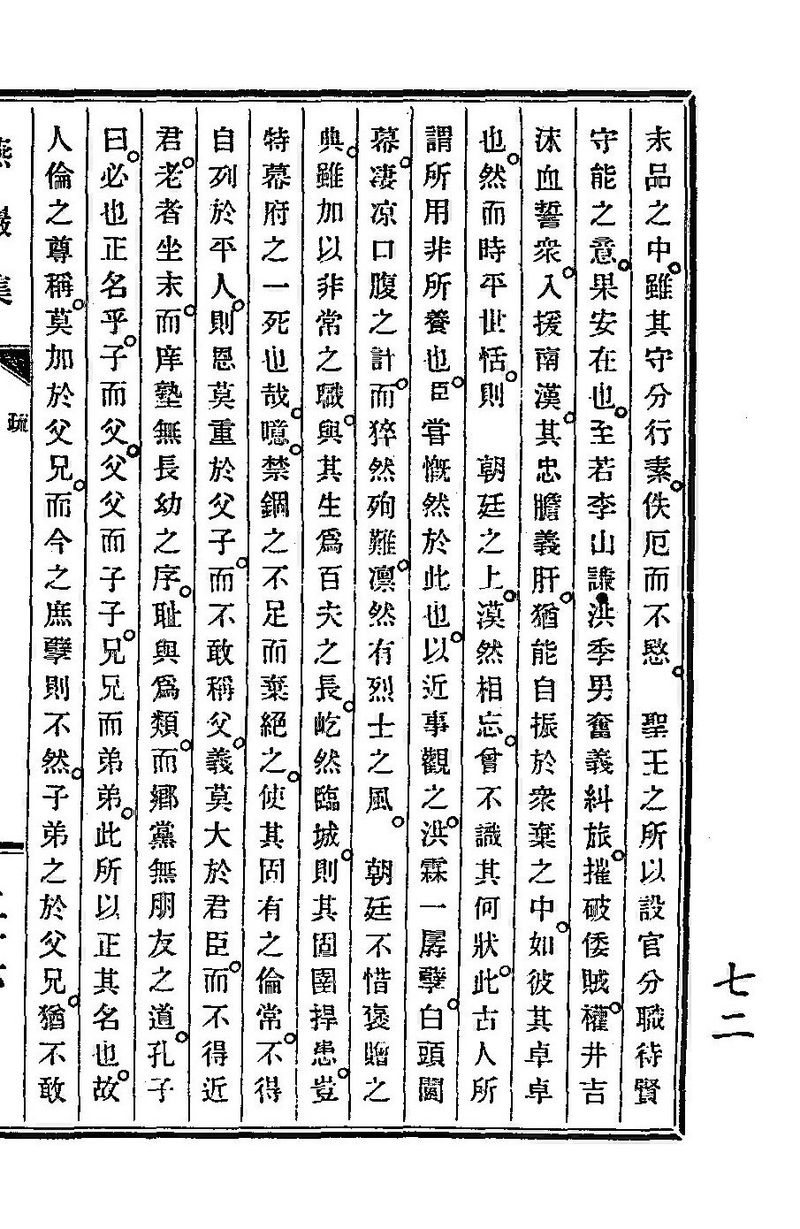 七二
末品之中。雖其守分行素。佚厄而不愍。 聖王之所以設官分職待賢
守能之意。果安在也。至若李山謙洪季男奮義糾旅。摧破倭賊。權井吉
沫血誓衆。入援南漢。其忠膽義肝。猶能自振於衆棄之中。如彼其卓卓
也。然而時平世恬。則 朝廷之上。漠然相忘。曾不識其何狀。此古人所
謂所用非所養也。臣甞慨然於此也。以近事觀之。洪霖一孱孽。白頭閫
幕。凄凉口腹之計。而猝然殉難。凛然有烈士之風。 朝廷不惜褒贈之
典。雖加以非常之職。與其生爲百夫之長。屹然臨城。則其固圉捍患。豈
特幕府之一死也哉。噫。禁錮之不足而棄絕之。使其固有之倫常。不得
自列於平人。則恩莫重於父子。而不敢稱父。義莫大於君臣。而不得近
君。老者坐末。而庠塾無長幼之序。耻與爲類。而鄕黨無朋友之道。孔子
曰。必也正名乎。子而父。父父而子子。兄兄而弟弟。此所以正其名也。故
人倫之尊稱。莫加於父兄。而今之庶孽則不然。子弟之於父兄。猶不敢
燕巖集
疏